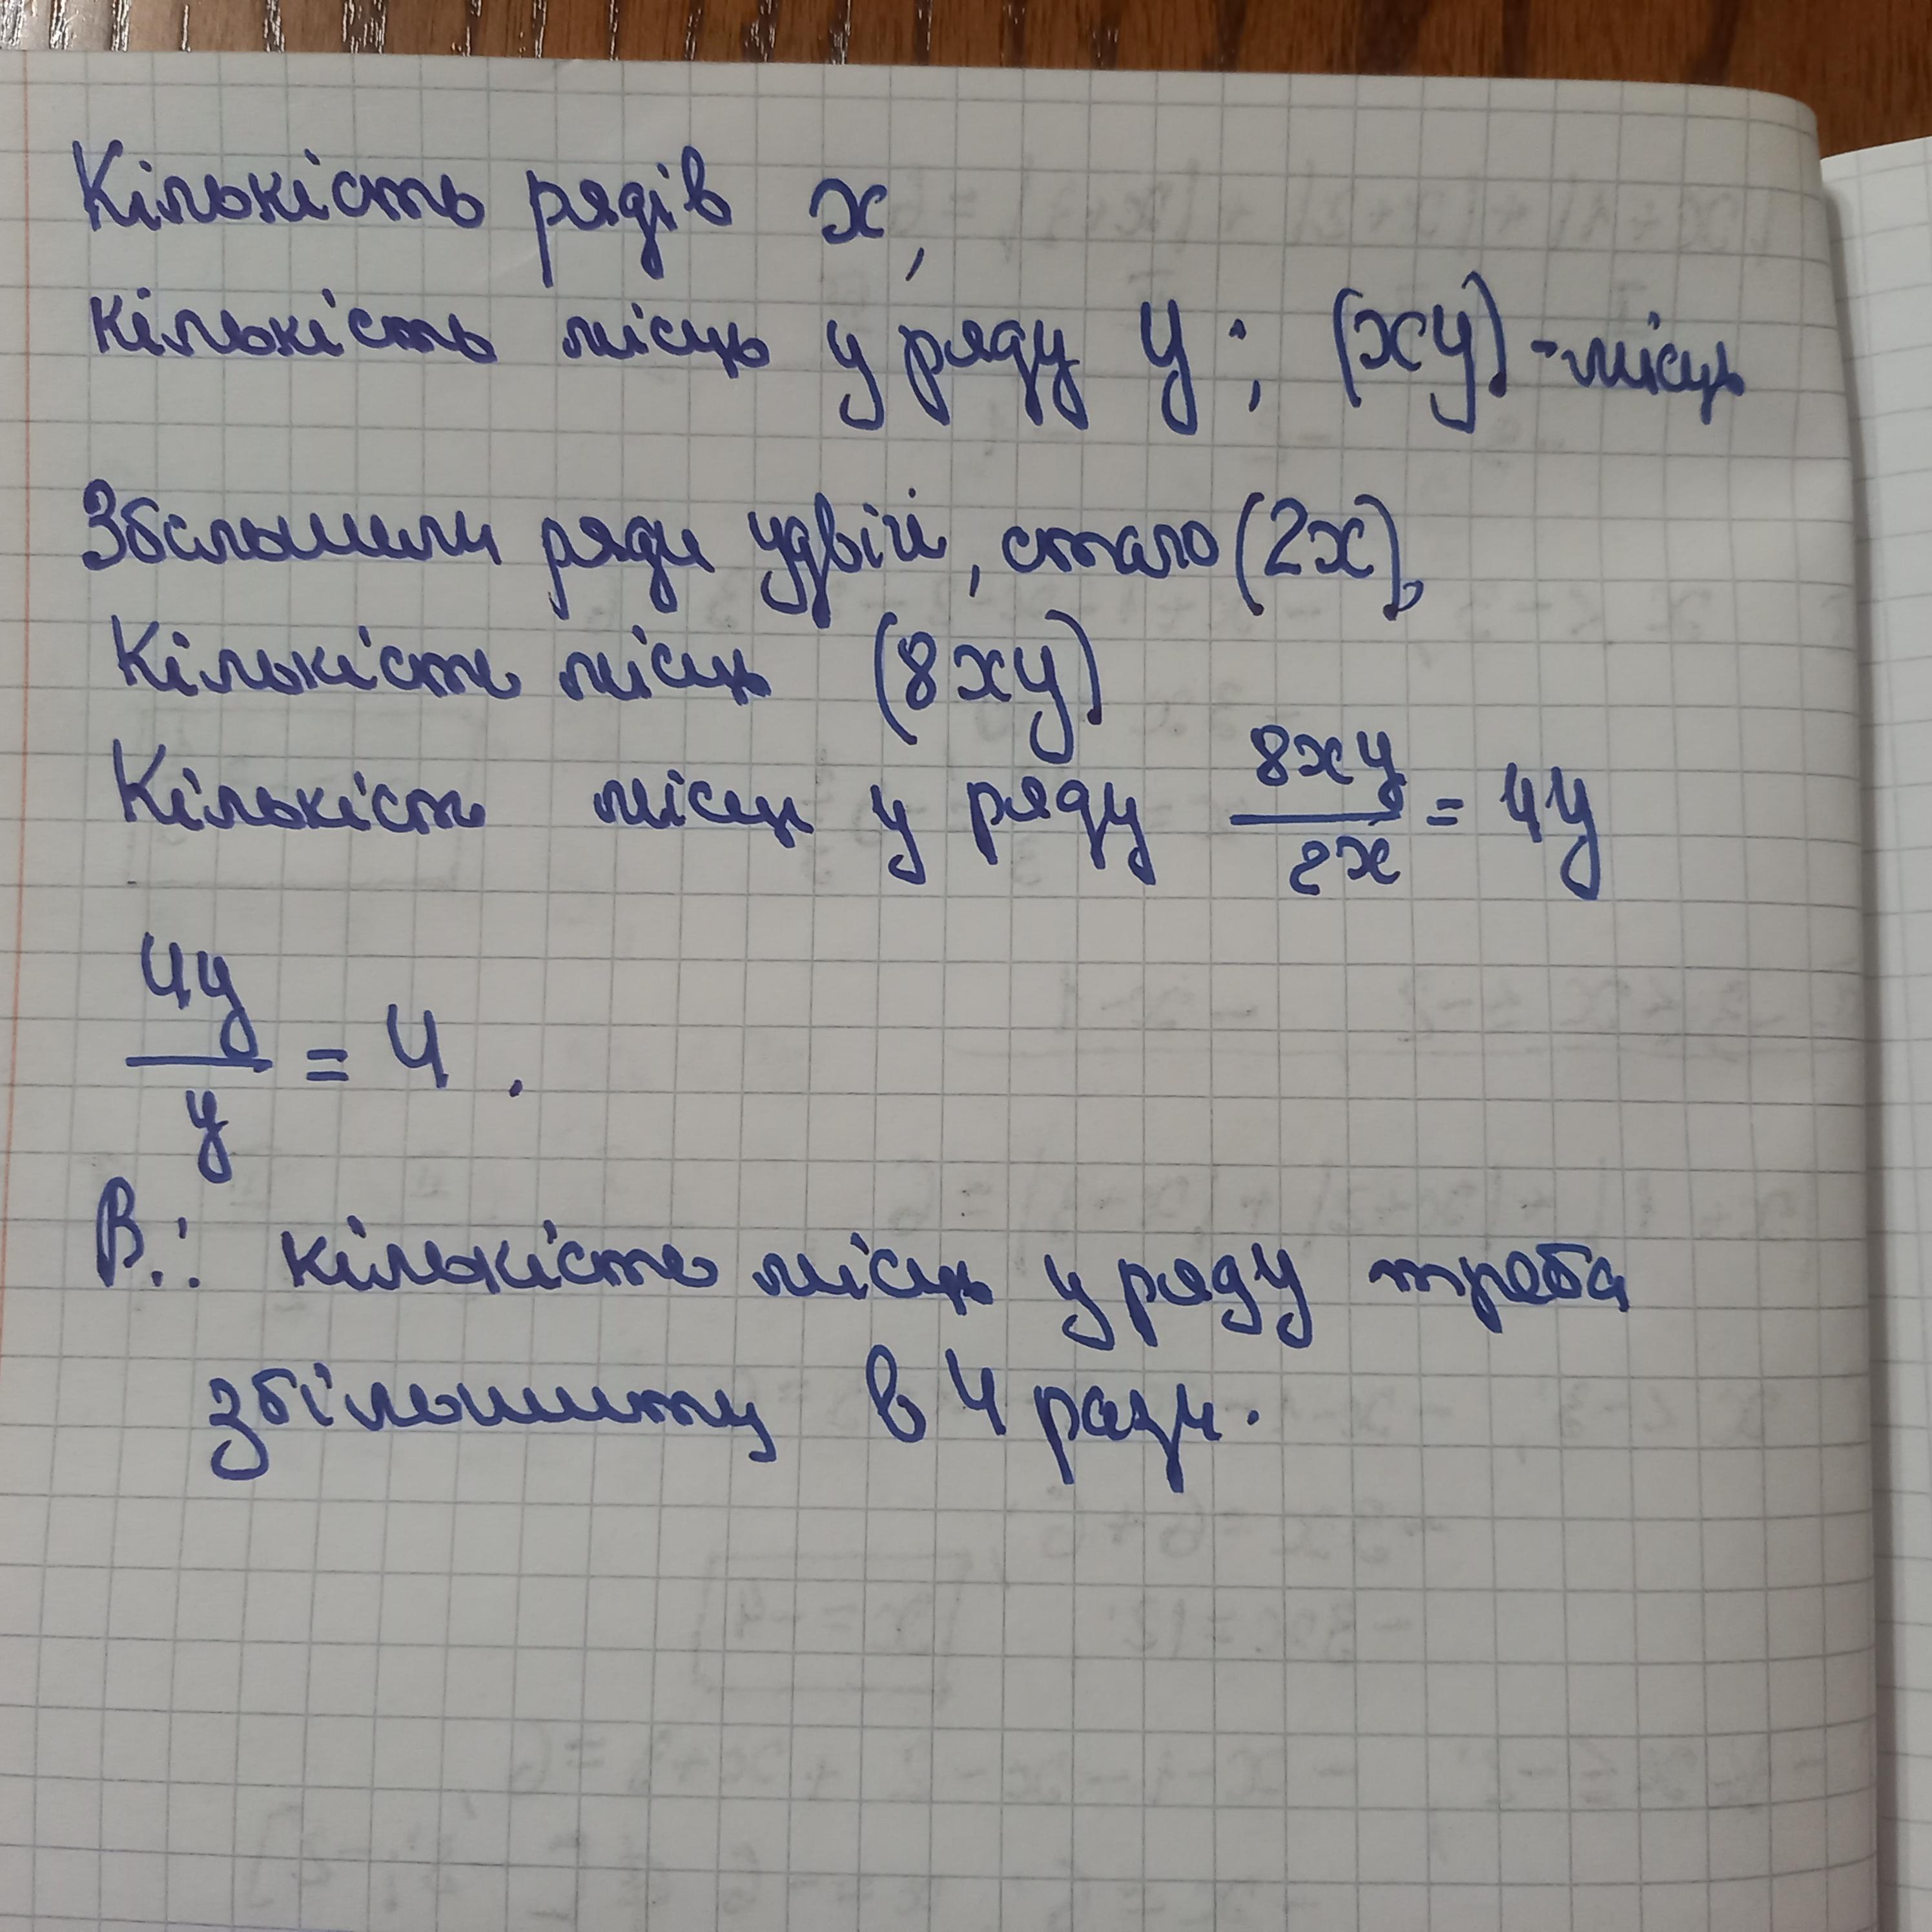 Кількість рядів x,
кількість місць у ряду y; (xy) - місць
Збільшили ряди удвічі, стало (2x),
Кількість місць (8xy)
Кількість місць у ряду 8xy/2x = 4y
4y/y = 4.
В.: кількість місць у ряду треба
збільшити в 4 рази.